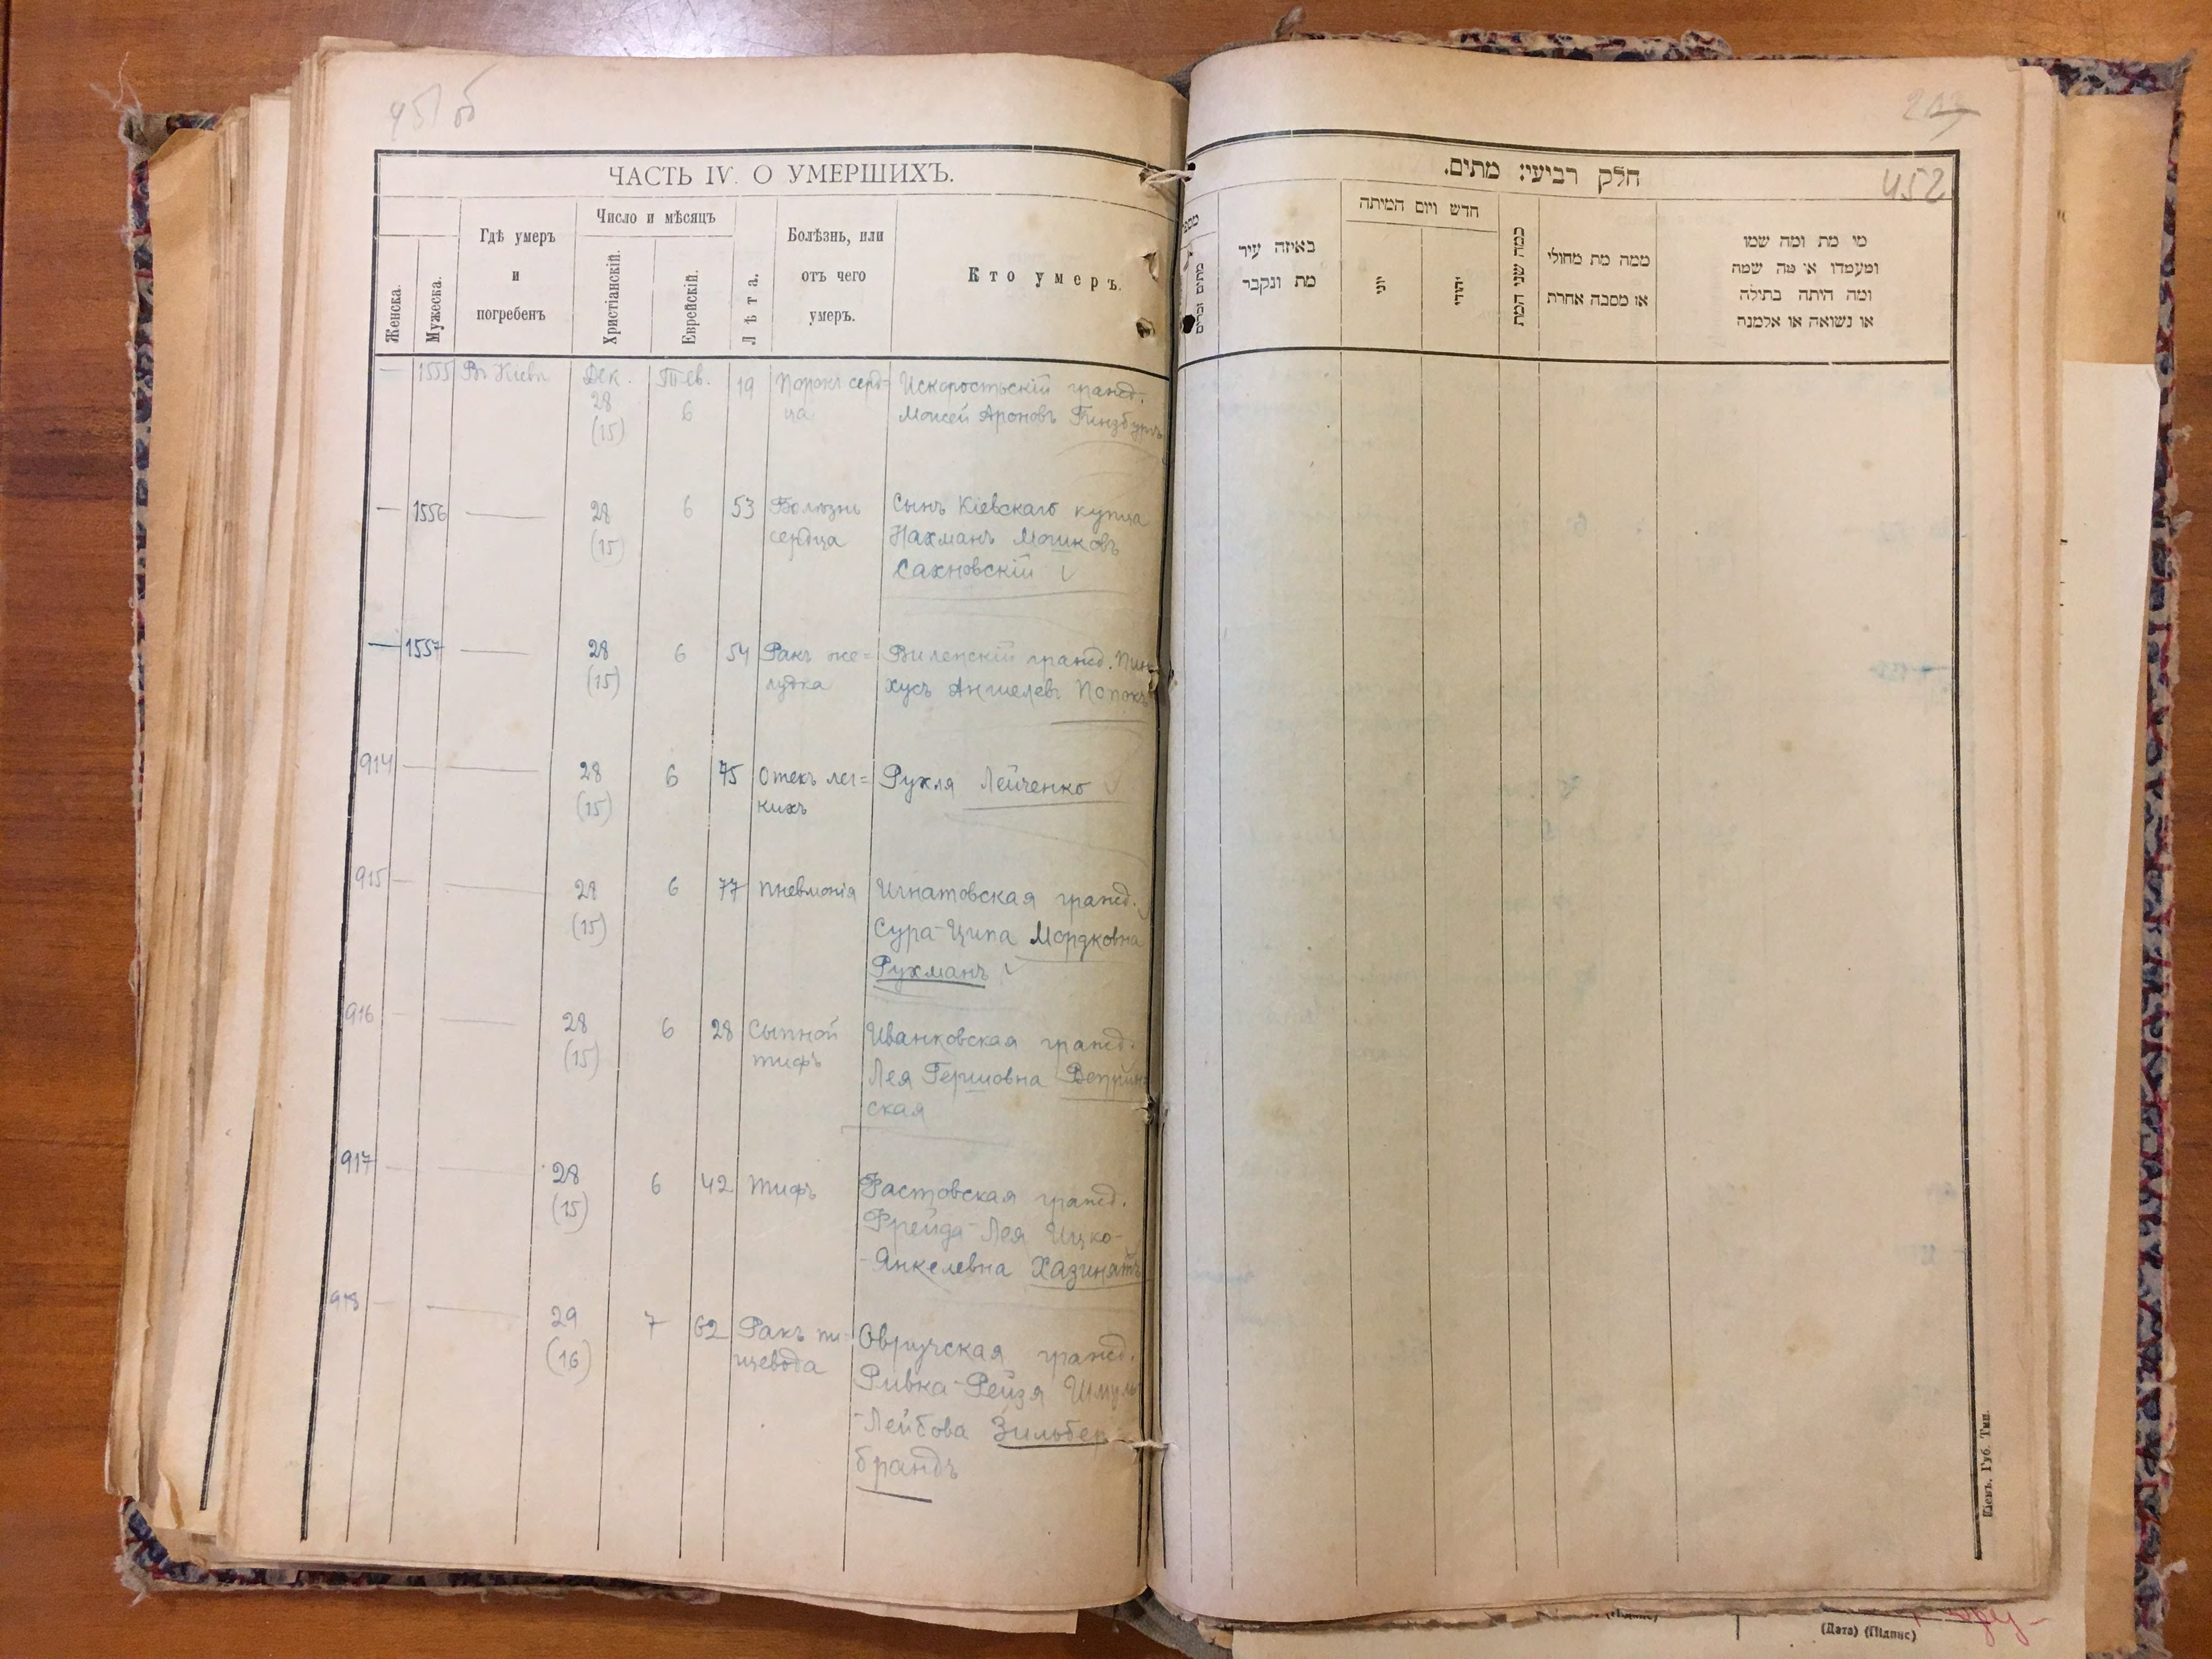 451 об
ЧАСТЬ IV. О УМЕРШИХЪ.
Женска.
Мужеска.
Гдѣ умеръ
и
погребенъ
Число и мѣсяцъ
Христіанскій.
Еврейскій.
Лѣта.
Болѣзнь, или
отъ чего
умеръ.
Кто умеръ.
— 1555 Въ Кіевѣ Дек. Тев. 19 Порокъ серд= Искоростьскій гражд.
28 6 ца Моисей Ароновъ Гинзбургъ
(15)
— 1556 — 28 6 53 Болѣзнь Сынъ Кіевскаго купца
(15) сердца Нахманъ Мошковъ
Сахновскій
— 1557 — 28 6 54 Ракъ же= Виленскій гражд. Пин
(15) лудка хусъ Аншелевъ Попокъ
914 — — 28 6 75 Отекъ лег= Рухля Лейченко
(15) кихъ
915 — — 28 6 77 Пневмонія Игнатовская гражд.
(15) Сура-Ципа Мордковна
Рухманъ
916 — — 28 6 28 Сыпной Иванковская гражд.
(15) тифъ Лея Гершовна Веприн=
ская
917 — — 28 6 42 Тифъ Фастовская гражд.
(15) Фрейда-Лея Ицко-
-Янкелевна Хазинятъ
918 — — 29 7 62 Ракъ пи= Овручская гражд.
(16) щевода Ривка-Рейзя Шмуль
-Лейбова Зильбер=
брандъ
452
חלק רביעי: מתים.
מספר
מתים זכרים
באיזה עיר
מת ונקבר
חדש ויום המיתה
יוני
יהודי
כמה שני המת
ממה מת מחולי
או מסבה אחרת
מי מת ומה שמו
ומעמדו או מה שמה
ומה היתה בתולה
או נשואה או אלמנה
Кіевъ. Губ. Тип.
(Дата) (Підпис)